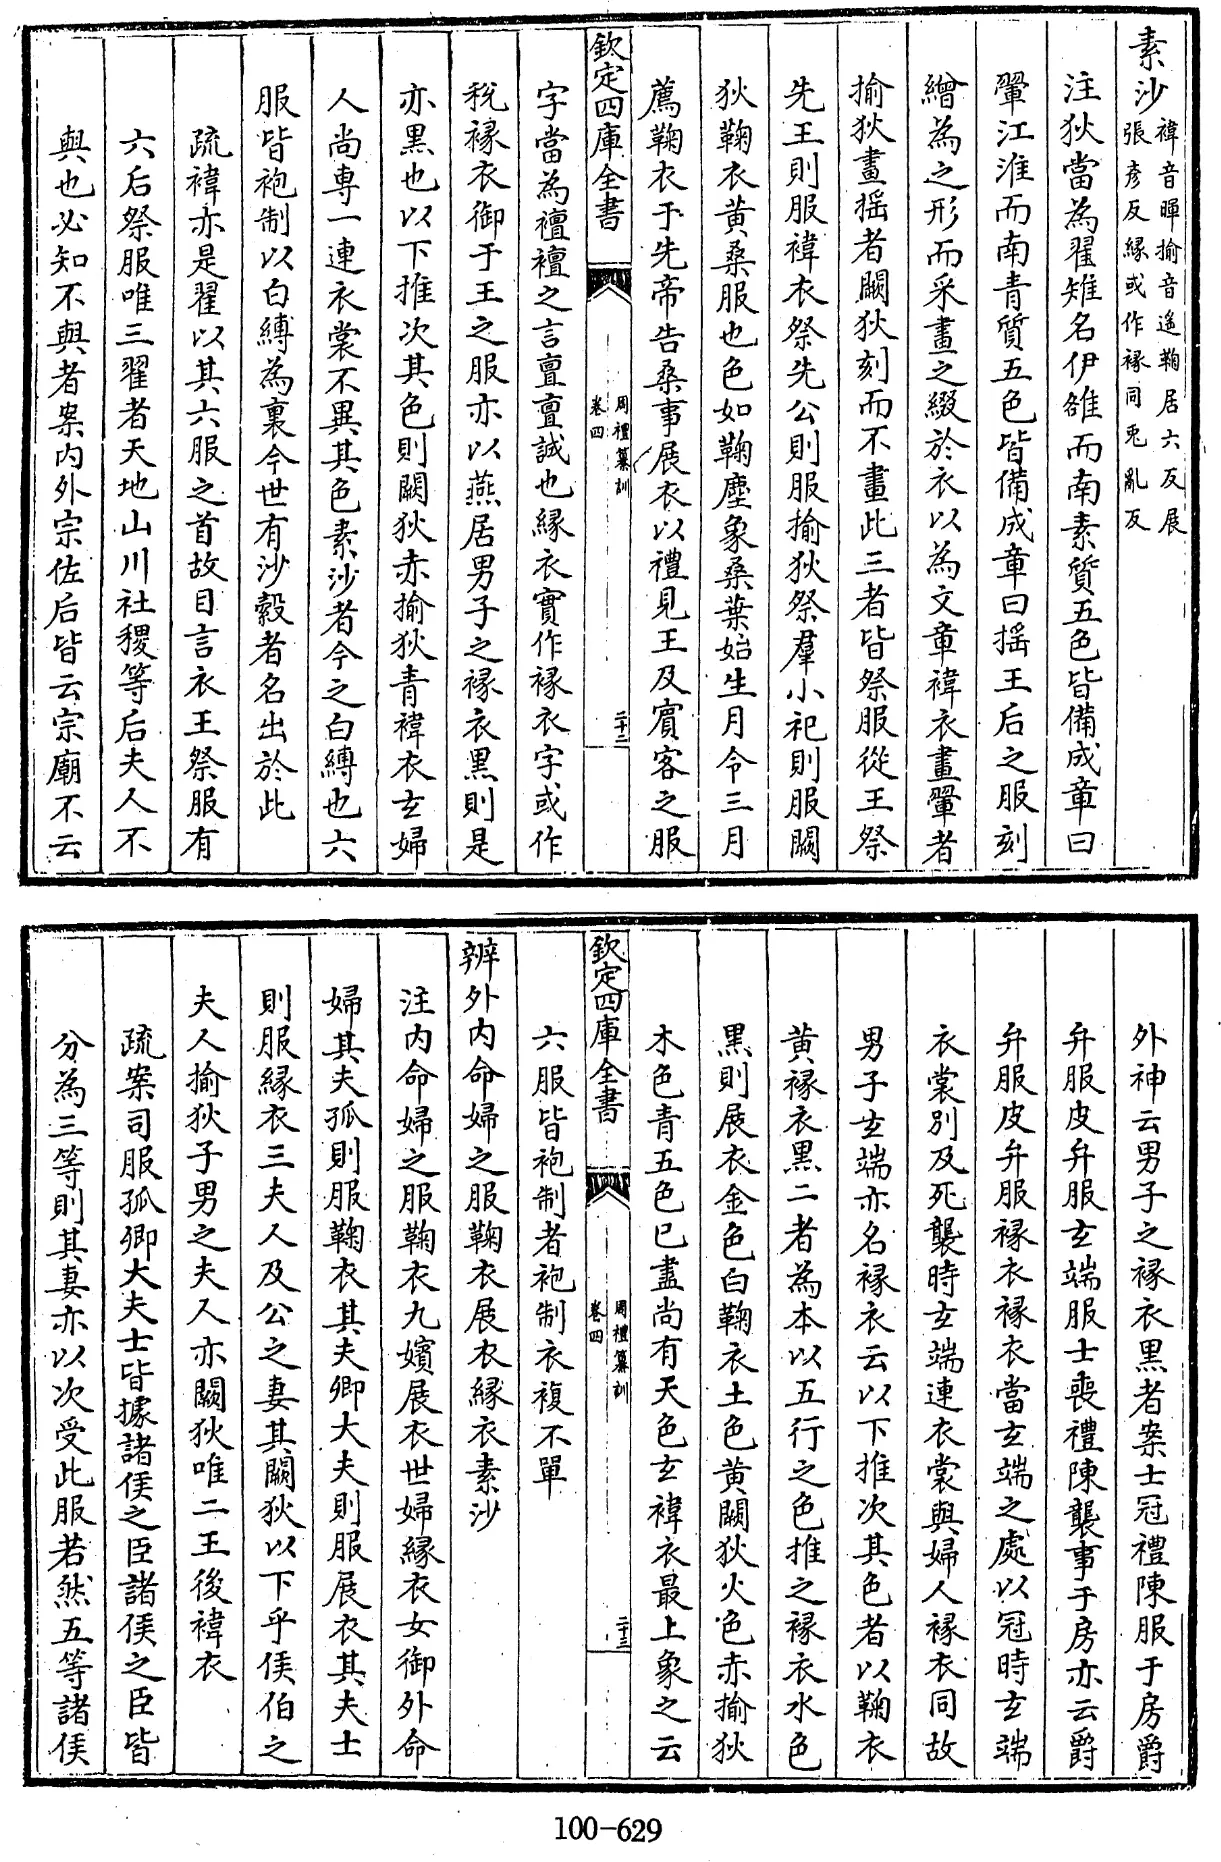 素沙褘音暉揄音遙鞠居六反展
張彥反緣或作褖同兎亂反
注狄當為翟雉名伊雒而南素質五色皆備成章曰
翬江淮而南青質五色皆備成章曰搖王后之服刻
繒為之形而采畫之綴於衣以為文章褘衣畫翬者
揄狄畫搖者闕狄刻而不畫此三者皆祭服從王祭
先王則服褘衣祭先公則服揄狄祭羣小祀則服闕
狄鞠衣黃桑服也色如鞠塵象桑葉始生月令三月
薦鞠衣于先帝告桑事展衣以禮見王及賓客之服
欽定四庫全書
周禮纂訓
卷四
二十二
字當為襢襢之言亶亶誠也緣衣實作褖衣字或作
稅褖衣御于王之服亦以燕居男子之褖衣黑則是
亦黑也以下推次其色則闕狄赤揄狄青褘衣玄婦
人尚專一連衣裳不異其色素沙者今之白縛也六
服皆袍制以白縛為裏今世有沙縠者名出於此
疏褘亦是翟以其六服之首故目言衣王祭服有
六后祭服唯三翟者天地山川社稷等后夫人不
與也必知不與者案內外宗佐后皆云宗廟不云
外神云男子之褖衣黑者案士冠禮陳服于房爵
弁服皮弁服玄端服士喪禮陳襲事于房亦云爵
弁服皮弁服褖衣褖衣當玄端之處以冠時玄端
衣裳別及死襲時玄端連衣裳與婦人褖衣同故
男子玄端亦名褖衣云以下推次其色者以鞠衣
黃褖衣黑二者為本以五行之色推之褖衣水色
黑則展衣金色白鞠衣土色黃闕狄火色赤揄狄
木色青五色已盡尚有天色玄褘衣最上象之云
欽定四庫全書
周禮纂訓
卷四
二十三
六服皆袍制者袍制衣複不單
辨外內命婦之服鞠衣展衣緣衣素沙
注內命婦之服鞠衣九嬪展衣世婦緣衣女御外命
婦其夫孤則服鞠衣其夫卿大夫則服展衣其夫士
則服緣衣三夫人及公之妻其闕狄以下乎侯伯之
夫人揄狄子男之夫人亦闕狄唯二王後褘衣
疏案司服孤卿大夫士皆據諸侯之臣諸侯之臣皆
分為三等則其妻亦以次受此服若然五等諸侯
100-629